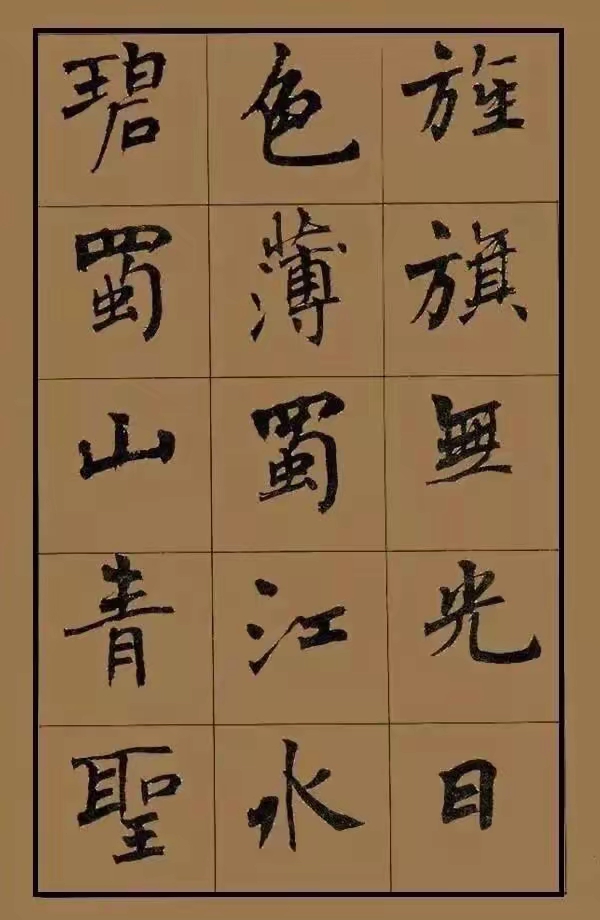 旌旗無光日
色薄蜀江水
碧蜀山青聖